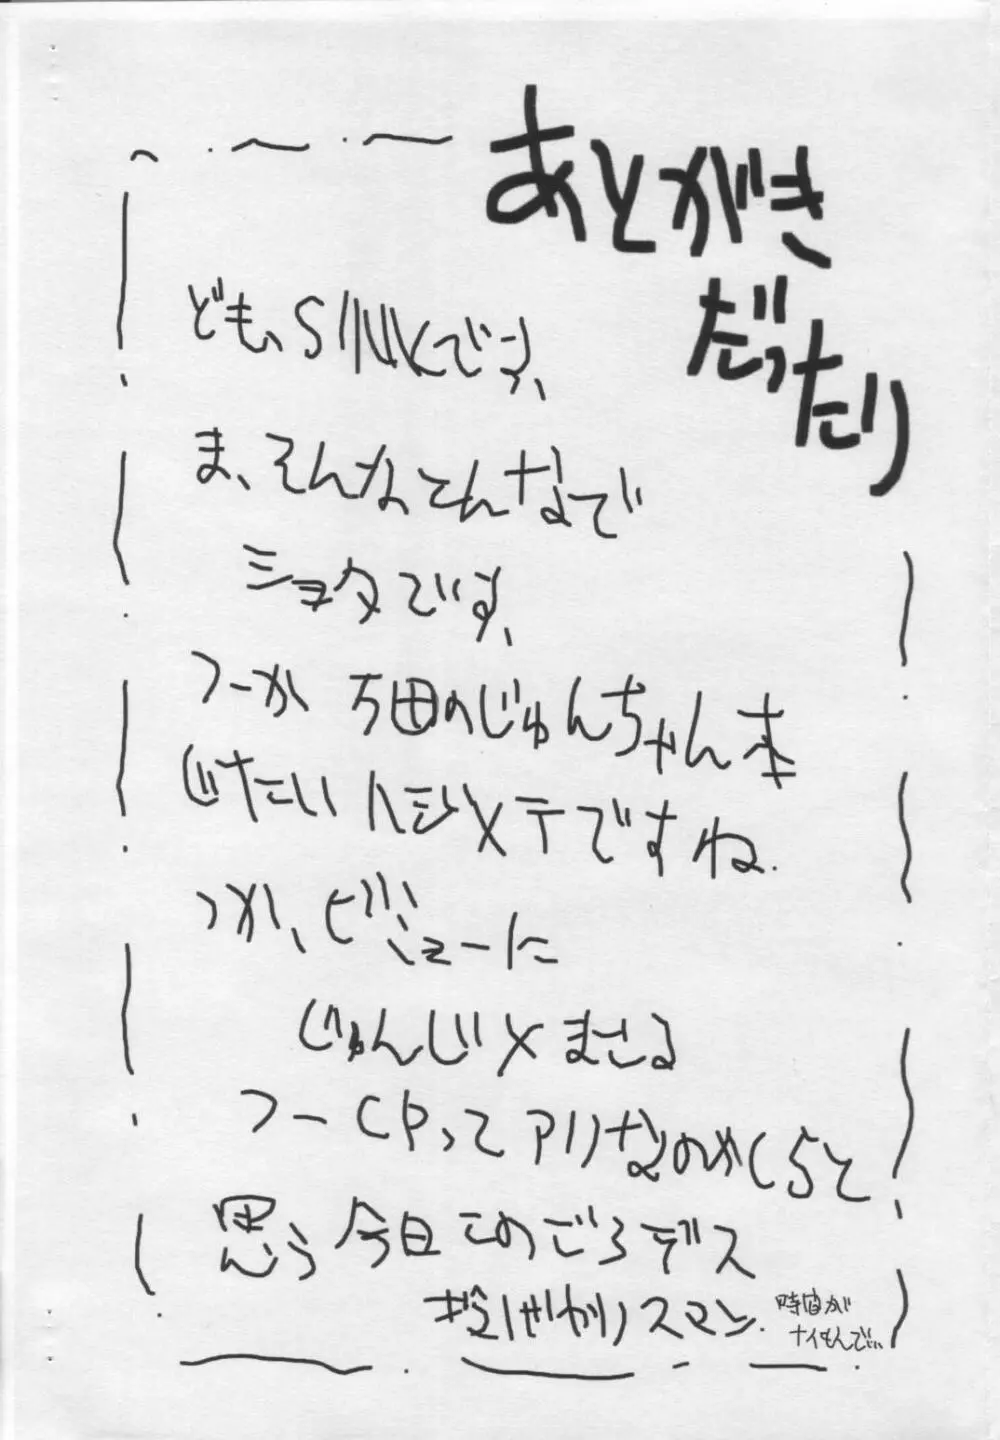 あとがき
だったり
ども、SINKです、
ま、そんなこんなで
ショタです、
つーか 万田のじゅんちゃん本
じたい ハジメテですね.
つか、ビジューに
じゅんじ×まさる
つーCPって アリなのかしらと
思う今日このごろデス
スマン.
時間が
ナイもんで…